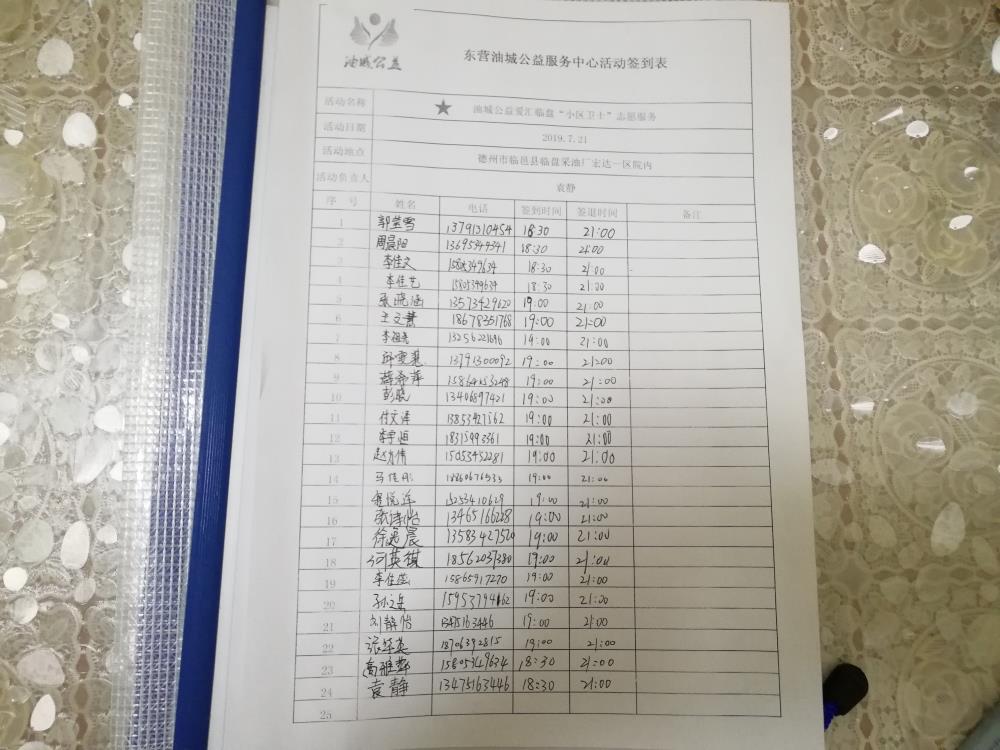 油城公益
东营油城公益服务中心活动签到表
活动名称 油城公益爱汇临盘“小区卫士”志愿服务
活动日期 2019.7.21
活动地点 德州市临邑县临盘采油厂宏达一区院内
活动负责人 袁静
序 号 姓名 电话 签到时间 签退时间 备注
1 郭莹雪 13791310454 18:30 21:00
2 周晨阳 13695344341 18:30 21:00
3 李佳文 1580349634 18:30 21:00
4 李佳艺 15805349634 18:30 21:00
5 张晓涵 13573429620 19:00 21:00
6 王文慧 18678351768 19:00 21:00
7 19:00 21:00
8 邱雯菲 13791300092 19:00 21:00
9 薛泽萍 15864653248 19:00 21:00
10 彭晓 13406897421 19:00 21:00
11 付文涛 13853427562 19:00 21:00
12 李宇恒 18315993361 19:00 21:00
13 15053452281 19:00 21:00
14 马佳彤 19:00 21:00
15 15253410629 19:00 21:00
16 13465166228 19:00 21:00
17 徐逸晨 13583427520 19:00 21:00
18 英祺 18562037380 19:00 21:00
19 15865917270 19:00 21:00
20 孙文岳 15953794162 19:00 21:00
21 刘静怡 13475163446 19:00 21:00
22 18706392815 19:00 21:00
23 高雅 15805349634 18:30 21:00
24 袁静 13475163446 18:30 21:00
25